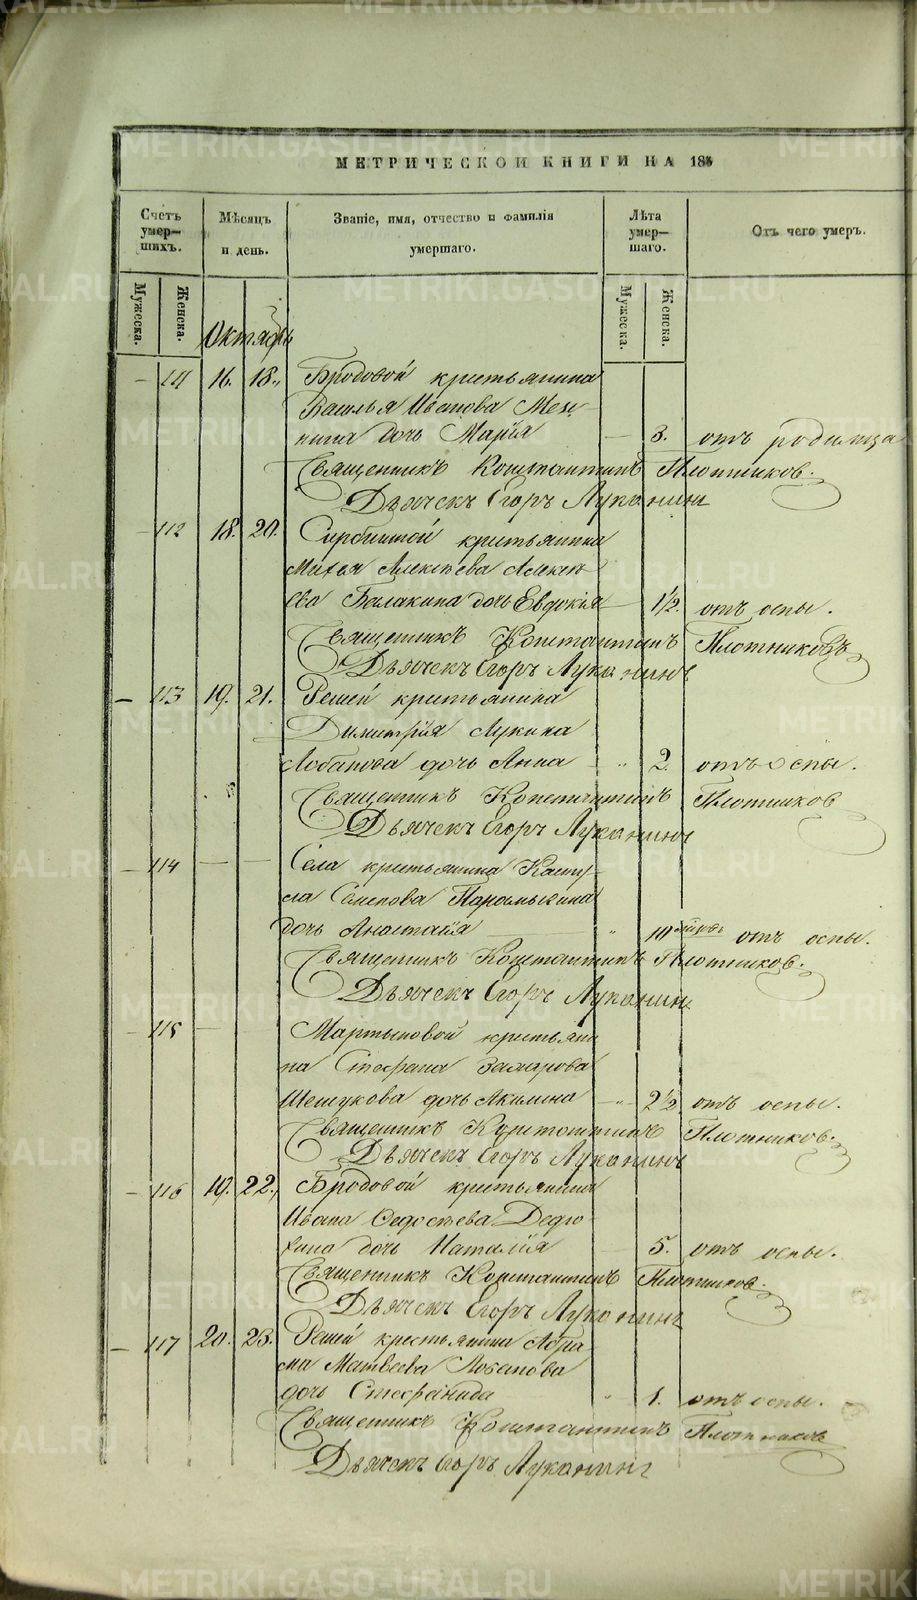 МЕТРИЧЕСКОЙ КНИГИ НА 185
Счетъ умер-шихъ. Мѣсяцъ и день. Званіе, имя, отчество и фамилія умершаго. Лѣта умер-шаго. Отъ чего умеръ.
Мужеска. Женска. Мужеска. Женска.
Октябрь
111 16. 18. Бродовой крестьянина
Василья Иванова
дочь Марія 3. отъ родимца
Священникъ Константинъ Плотников.
Дьячекъ Егоръ Луканинъ
112 18. 20. крестьянина
Алексѣева Алексѣ-
ева Балакина дочь Евдокія 1½. отъ оспы.
Священникъ Константинъ Плотниковъ
Дьячекъ Егоръ Луканинъ
113 19. 21. Решей крестьянина
Димитрія Лукина
Лобанова дочь Анна „ 2. отъ оспы.
Священникъ Константинъ Плотников
Дьячекъ Егоръ Луканинъ
114 — — Села крестьянина
Семенова
дочь Анастасія „ 10 отъ оспы.
Священникъ Константинъ Плотников.
Дьячекъ Егоръ Луканинъ
115 — Мартыновой крестьяни
на Стефана Захарова
дочь Акилина „ 2½ отъ оспы.
Священникъ Константинъ Плотников.
Дьячекъ Егоръ Луканинъ
116 19. 22. Бродовой крестьянина
Ивана Федосѣева Дедю-
хина дочь Наталія 5. отъ оспы.
Священникъ Константинъ Плотников.
Дьячекъ Егоръ Луканинъ
117 20. 23. Решей крестьянина Абра
ма Матвеева Лобанова
дочь Стефанида „ 1. отъ оспы.
Священникъ Константинъ Плотников
Дьячекъ Егоръ Луканинъ
METRIKI.GASO-URAL.RU